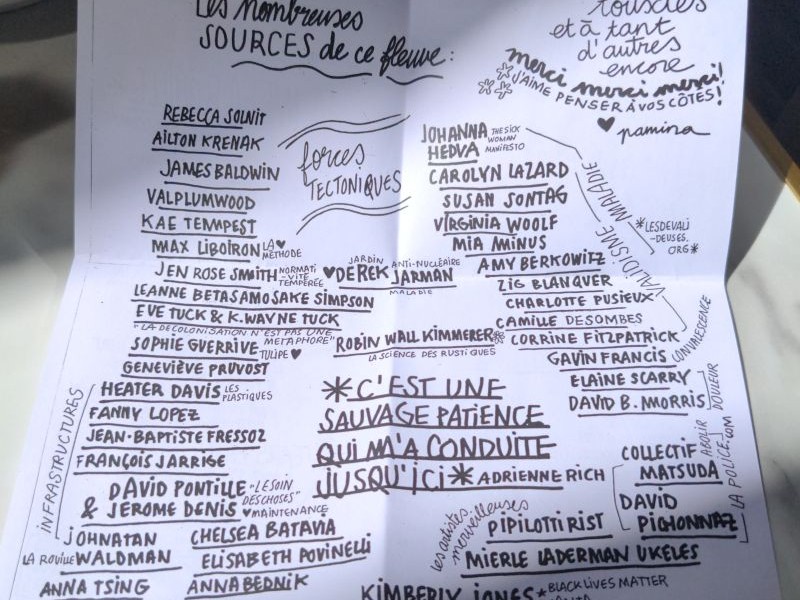 Les nombreuses
SOURCES de ce fleuve :
tous·tes
et à tant
d'autres
encore
merci merci merci!
J'AIME PENSER À VOS CÔTÉS!
pamina
REBECCA SOLNIT
AILTON KRENAK
JAMES BALDWIN
VALPLUMWOOD
KAE TEMPEST
MAX LIBOIRON LA ♥
MÉTHODE
JEN ROSE SMITH NORMATI
-VITÉ
TEMPÉRÉE
LEANNE BETASAMOSAKE SIMPSON
EVE TUCK & K. WAYNE TUCK
"LA DÉCOLONISATION N'EST PAS UNE
MÉTAPHORE"
SOPHIE GUERRIVE
TULIPE ♥
GENEVIÈVE PRUVOST
forces
TECTONIQUES
JARDIN ANTI-NUCLÉAIRE
♥ DEREK JARMAN
MALADIE
ROBIN WALL KIMMERER
LA SCIENCE DES RUSTIQUES
JOHANNA THE SICK
WOMAN
HEDVA MANIFESTO
CAROLYN LAZARD
SUSAN SONTAG
VIRGINIA WOOLF
MIA MINUS
AMY BERKOWITZ
ZIG BLANQUER
CHARLOTTE PUSIEUX
CAMILLE DESOMBES
CORRINE FITZPATRICK
GAVIN FRANCIS
ELAINE SCARRY
DAVID B. MORRIS
VALIDISME MALADIE
*LESDEVALI
-DEUSES.
ORG*
CONVALESCENCE
DOULEUR
INFRASTRUCTURES
HEATER DAVIS LES
PLASTIQUES
FANNY LOPEZ
JEAN-BAPTISTE FRESSOZ
FRANÇOIS JARRIGE
DAVID PONTILLE "LE SOIN
DES CHOSES"
& JÉROME DENIS ♥ MAINTENANCE
JOHNATAN
LA ROUILLE WALDMAN
ANNA TSING
CHELSEA BATAVIA
ELISABETH POVINELLI
ANNA BEDNIK
*C'EST UNE
SAUVAGE PATIENCE
QUI M'A CONDUITE
JUSQU'ICI* ADRIENNE RICH
COLLECTIF
MATSUDA
DAVID
PICHONNAZ
ABOLIR
LA POLICE.COM
les artistes
merveilleuses
PIPILOTTI RIST
MIERLE LADERMAN UKELES
KIMBERLY JONES *BLACK LIVES MATTER